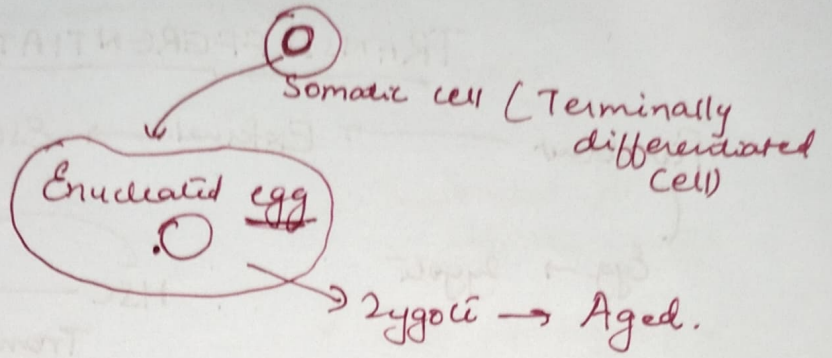 Somatic cell (Terminally
differentiated
cell)
Enucleated egg
Zygote → Aged.